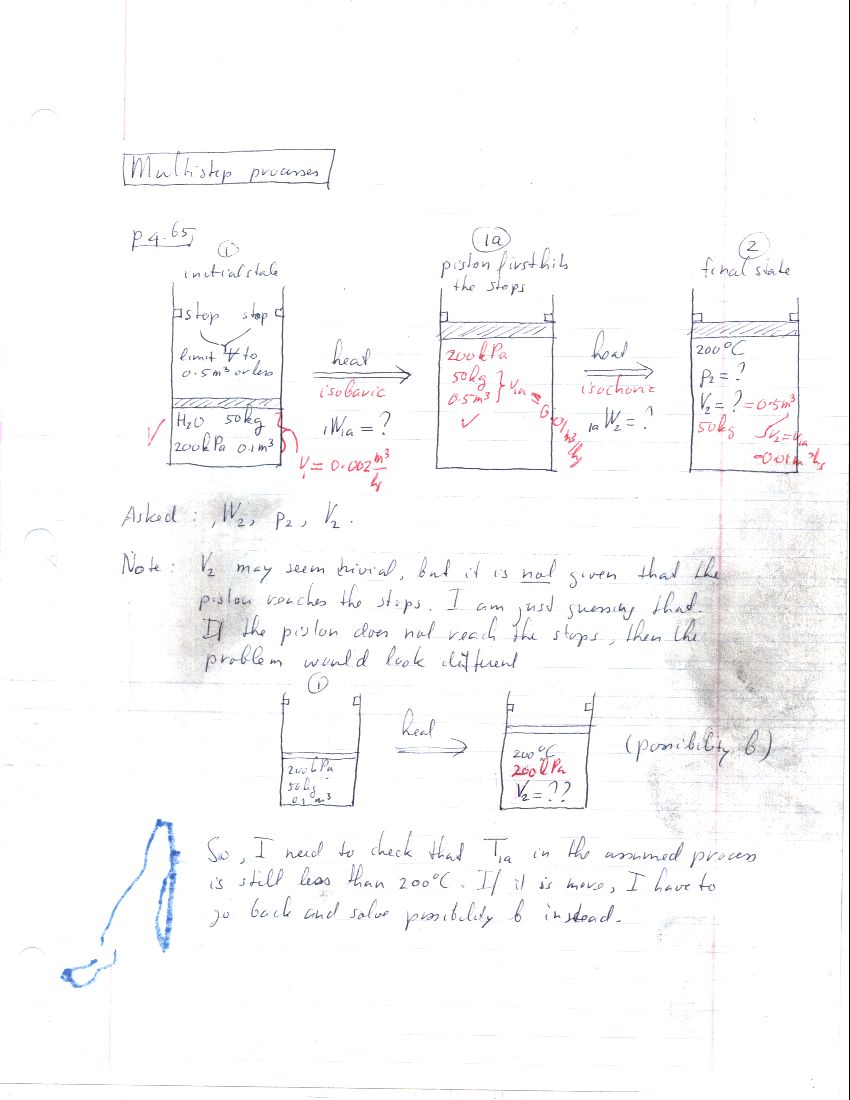 Multistep processes
p 4.65
①
initial state
stop stop
limit V to
0.5 m³ or less
H₂O 50kg
200kPa 0.1m³
v₁ = 0.002 m³/kg
heat
isobaric
₁W₁ₐ = ?
1a
piston first hits
the stops
200kPa
50kg
0.5m³
v₁ₐ = 0.01 m³/kg
heat
isochoric
₁ₐW₂ = ?
②
final state
200°C
p₂ = ?
V₂ = ? = 0.5m³
50kg
v₂ = v₁ₐ
= 0.01 m³/kg
Asked : ₁W₂, p₂, V₂.
Note : V₂ may seem trivial, but it is not given that the
piston reaches the stops. I am just guessing that.
If the piston does not reach the stops, then the
problem would look different
①
200kPa
50kg
0.1 m³
heat
200°C
200kPa
V₂ = ??
(possibility b)
So, I need to check that T₁ₐ in the assumed process
is still less than 200°C. If it is more, I have to
go back and solve possibility b instead.